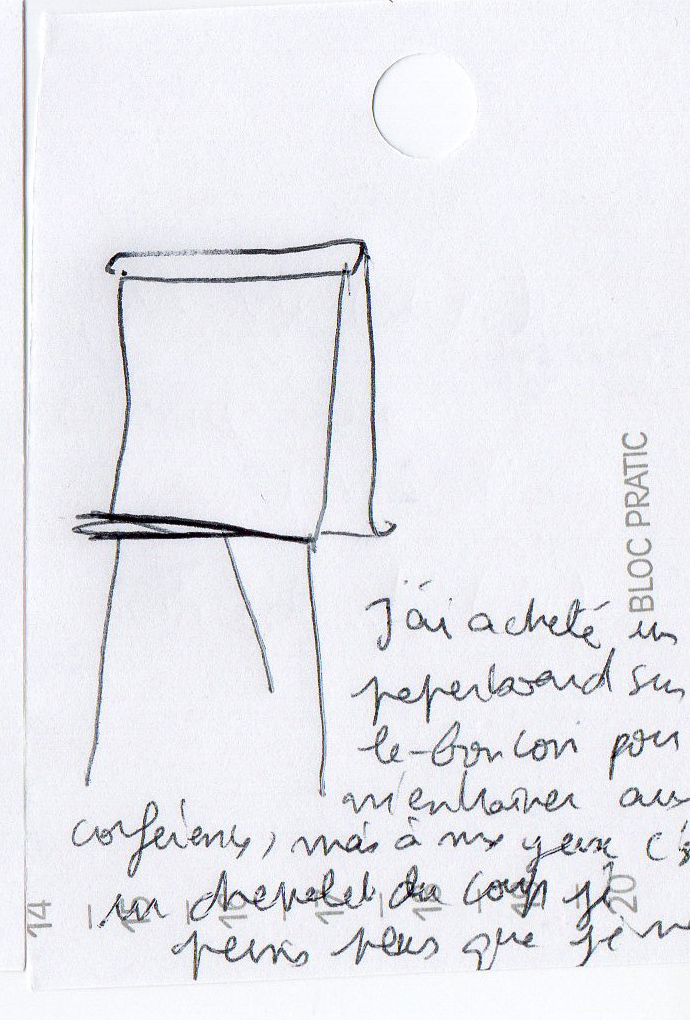 BLOC PRATIC
J'ai acheté un
paperboard sur
le-boncoin pour
m'entraîner aux
conférences, mais à mes yeux c'es
un chevalet du coup je
peins plus que je m
14
20